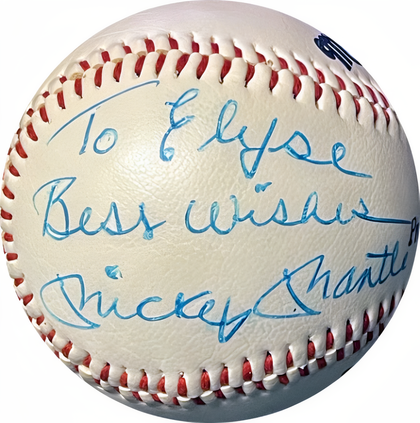 To Elyse
Best Wishes
Mickey Mantle